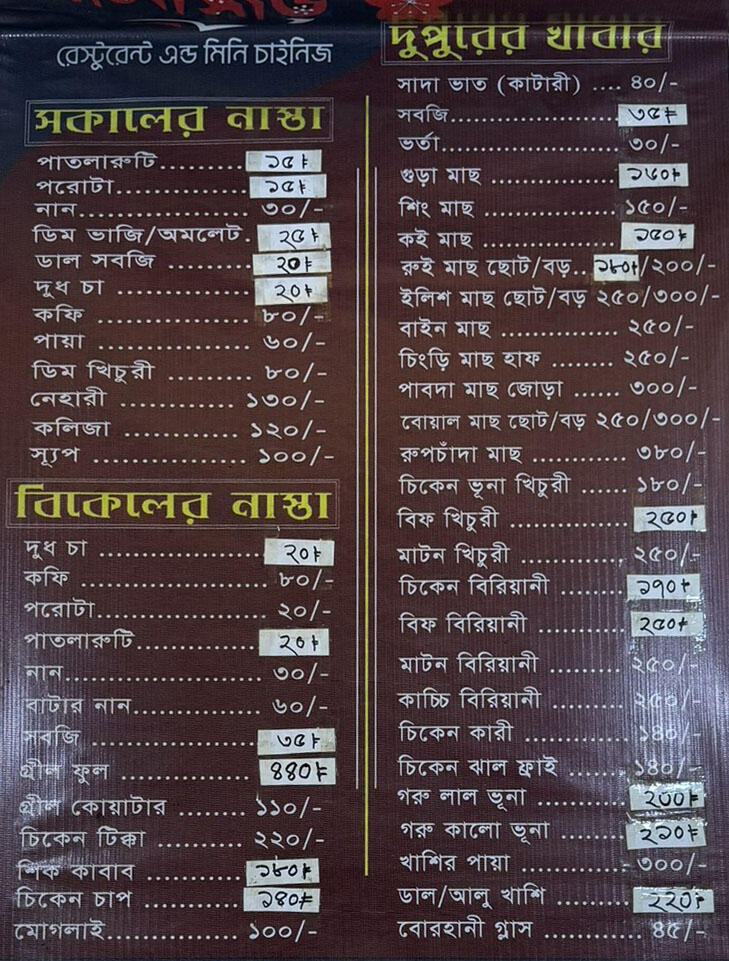 রেস্টুরেন্ট এন্ড মিনি চাইনিজ
সকালের নাস্তা
পাতলারুটি......... ১৫৳
পরোটা............. ১৫৳
নান.................. ৩০/-
ডিম ভাজি/অমলেট. ২৫৳
ডাল সবজি .......... ২০৳
দুধ চা ............... ২০৳
কফি ................ ৮০/-
পায়া ................ ৬০/-
ডিম খিচুরী ......... ৮০/-
নেহারী ............. ১৩০/-
কলিজা ............. ১২০/-
স্যূপ ................ ১০০/-
বিকেলের নাস্তা
দুধ চা ................ ২০৳
কফি .................. ৮০/-
পরোটা............... ২০/-
পাতলারুটি........... ২০৳
নান................... ৩০/-
বাটার নান............ ৬০/-
সবজি ................ ৩৫৳
গ্রীল ফুল ............. ৪৪০৳
গ্রীল কোয়াটার ........ ১১০/-
চিকেন টিক্কা ......... ২২০/-
শিক কাবাব .......... ১৮০৳
চিকেন চাপ .......... ১৪০৳
মোগলাই............. ১০০/-
দুপুরের খাবার
সাদা ভাত (কাটারী) .... ৪০/-
সবজি................... ৩৫৳
ভর্তা.................... ৩০/-
গুড়া মাছ .............. ১৬০৳
শিং মাছ ............... ১৫০/-
কই মাছ ............... ১৫০৳
রুই মাছ ছোট/বড়... ১৮০৳/২০০/-
ইলিশ মাছ ছোট/বড় ২৫০/৩০০/-
বাইন মাছ ............. ২৫০/-
চিংড়ি মাছ হাফ ........ ২৫০/-
পাবদা মাছ জোড়া ...... ৩০০/-
বোয়াল মাছ ছোট/বড় ২৫০/৩০০/-
রুপচাঁদা মাছ .......... ৩৮০/-
চিকেন ভূনা খিচুরী ...... ১৮০/-
বিফ খিচুরী ............. ২৫০৳
মাটন খিচুরী ............ ২৫০/-
চিকেন বিরিয়ানী ......... ১৭০৳
বিফ বিরিয়ানী ........... ২৫০৳
মাটন বিরিয়ানী .......... ২৫০/-
কাচ্চি বিরিয়ানী ......... ২৫০/-
চিকেন কারী ............ ১৪০/-
চিকেন ঝাল ফ্রাই ....... ১৪০/-
গরু লাল ভূনা .......... ২০০৳
গরু কালো ভূনা ......... ২১০৳
খাশির পায়া ............. ৩০০/-
ডাল/আলু খাশি ......... ২২০৳
বোরহানী গ্লাস ........... ৪৫/-